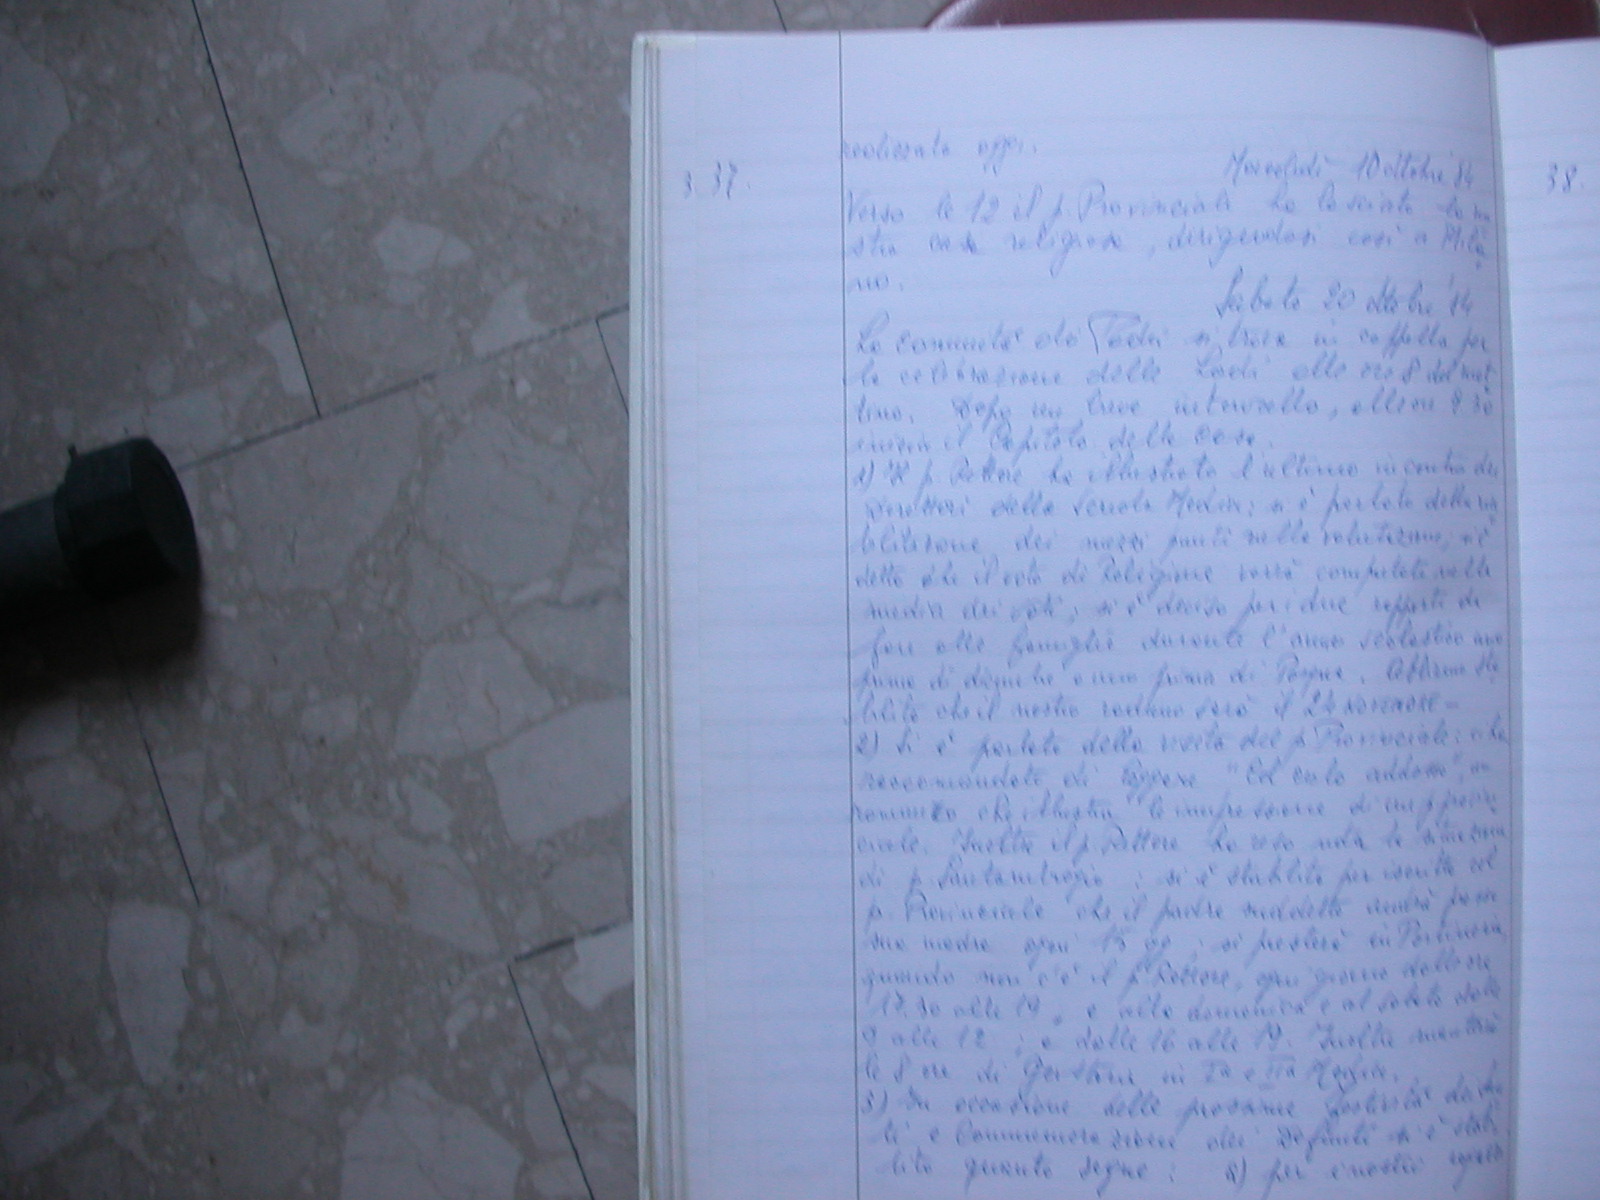 realizzato oggi.
Mercoledì 10 ottobre '84
3.37.
38.
Verso le 12 il p. Provinciale ha lasciato la no
stra casa religiosa, dirigendosi così a Mila
no.
Sabato 20 ottobre '84
La comunità dei Padri si trova in cappella per
la celebrazione delle Lodi alle ore 8 del mat
tino. Dopo un breve intervallo, alle ore 9 30
inizia il Capitolo della Casa.
1) Il p. Rettore ha illustrato l'ultimo incontro dei
Direttori della Scuola Media; si è parlato della
dei mezzi punti nella valutazione, si è
detto che il voto di Religione verrà computato nella
media dei voti; si è deciso per i due rapporti da
fare alle famiglie durante l'anno scolastico uno
prima di e uno prima di Pasqua. Abbiamo sta
bilito che il nostro raduno sarà il 24 novembre -
2) Si è parlato della visita del p. Provinciale: ci ha
raccomandato di leggere "Col cielo addosso", un
romanzo che illustra le impressione di un p. provin
ciale. Inoltre il p. Rettore ha reso nota la situazione
di p. Santambrogio; si è stabilito per iscritto col
p. Provinciale che il padre suddetto andrà presso
sua madre ogni 15 gg; si presterà in Portineria,
quando non c'è il p. Rettore, ogni giorno dalle ore
17.30 alle 19, e alla domenica e al sabato dalle
9 alle 12; e dalle 16 alle 19. Inoltre
le 8 ore di in Iª e IIª Media.
3) In occasione delle prossime festività dei San
ti e Commemorazione dei Defunti si è stabi
lito quanto segue: a) per i nostri